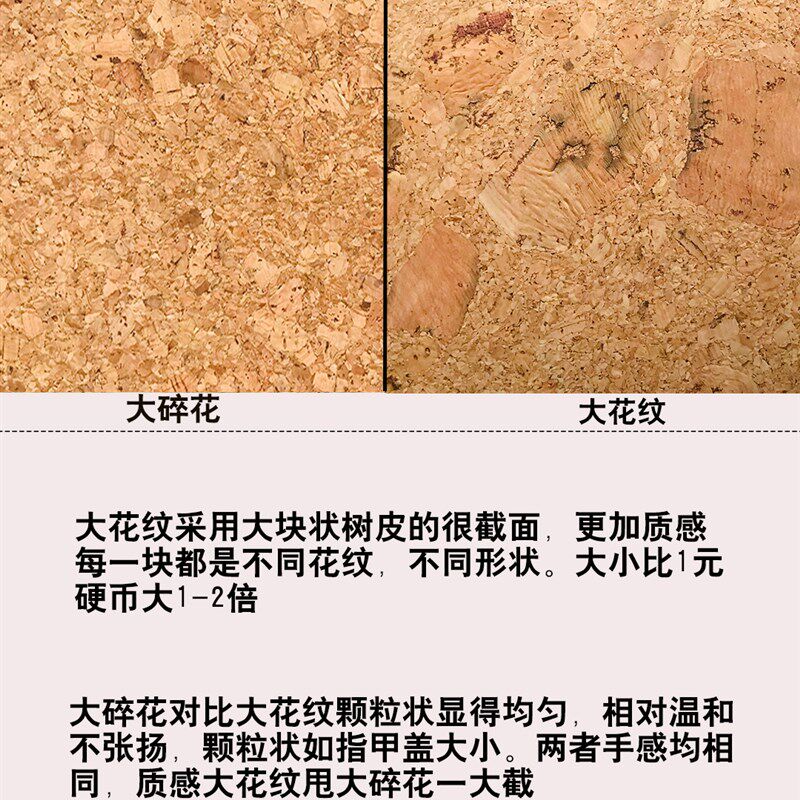 大碎花
大花纹
大花纹采用大块状树皮的很截面, 更加质感
每一块都是不同花纹, 不同形状。大小比1元
硬币大1-2倍
大碎花对比大花纹颗粒状显得均匀, 相对温和
不张扬, 颗粒状如指甲盖大小。两者手感均相
同, 质感大花纹甩大碎花一大截